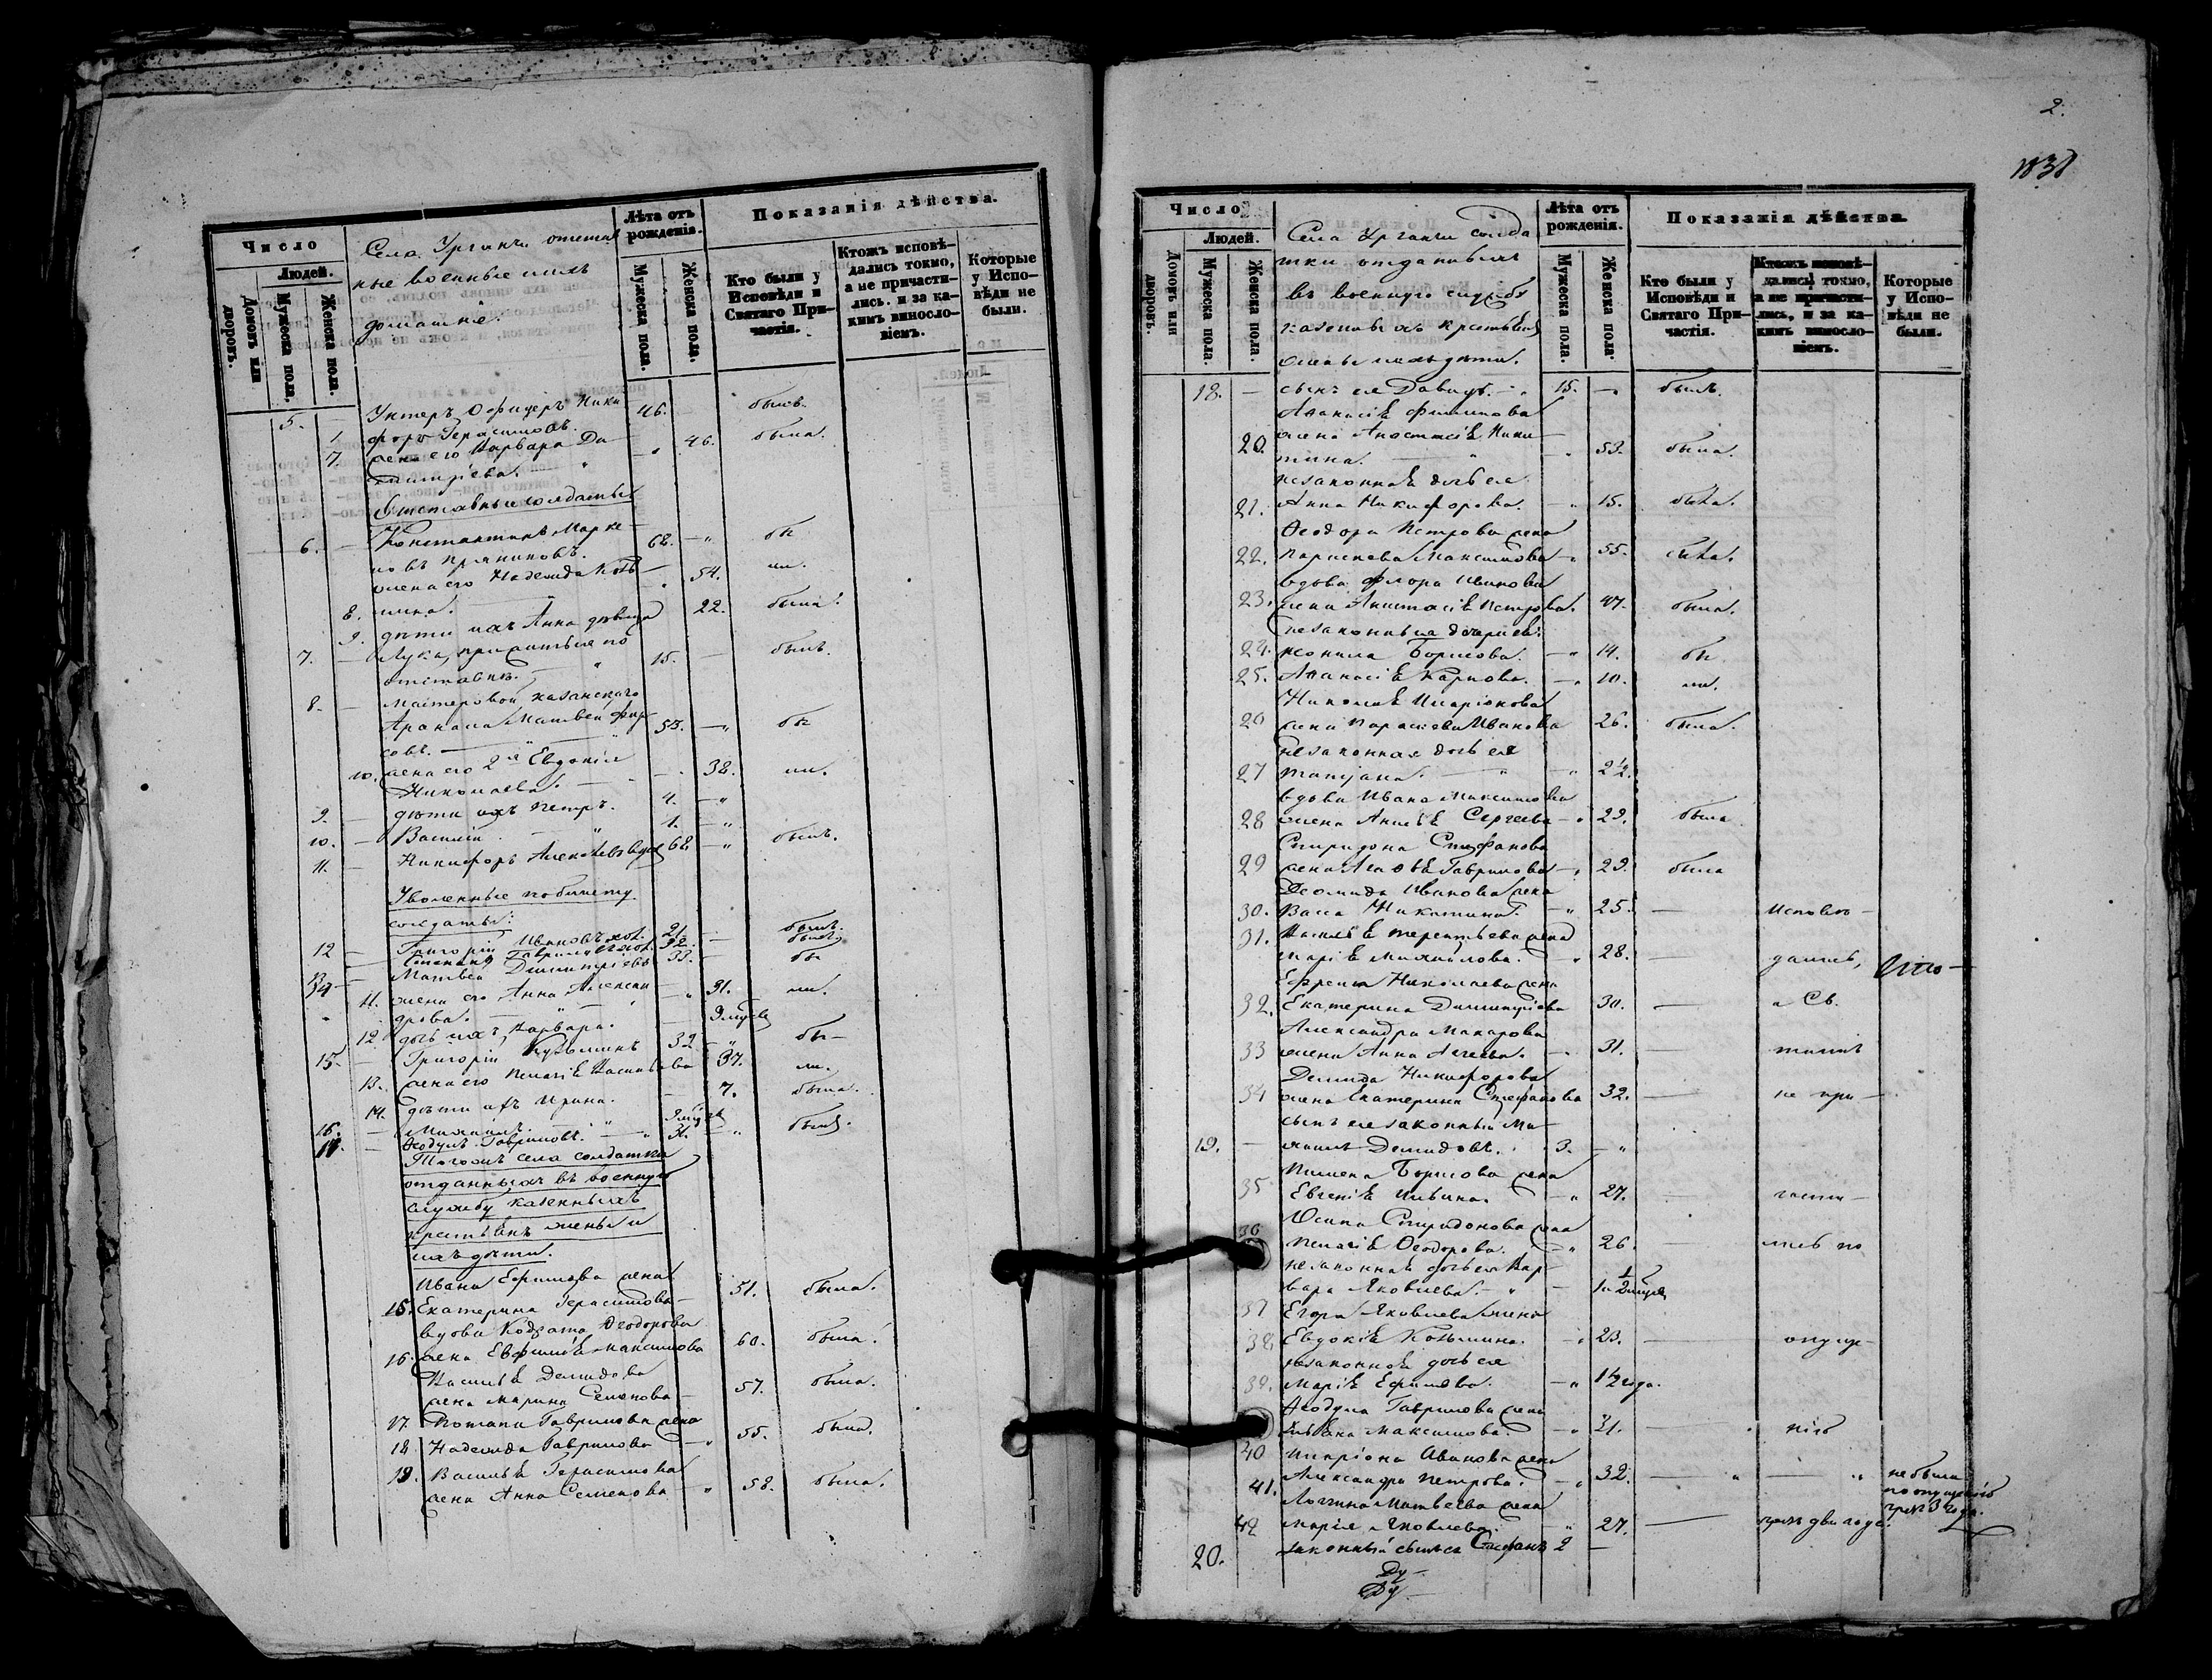 Число
Людей.
Домовъ или дворовъ.
Мужеска пола.
Женска пола.
Села Урганчи отстав
ные военные и ихъ
домашніе.
Лѣта отъ рожденія.
Мужеска пола.
Женска пола.
Показанія дѣйства.
Кто были у Исповѣди и Святаго Причастія.
Ктожъ исповѣдались токмо, а не причастились. и за какимъ винословіемъ.
Которые у Исповѣди не были.
5. Унтеръ Офицеръ Ники
форъ Герасимовъ. 46. былъ.
7. жена его Варвара Ди
митріева. 46. была.
Отставные солдаты
6. Константинъ Марке
ловъ 68. бы
жена его Надежда
8. 54. ли.
9. дѣти ихъ Анна дѣвица 22. была.
7. Лука, по
отставкѣ. 15. былъ.
8. Мастеровой казанскаго
Матвей Фир
совъ. 53. бы
10. жена его 2я Евдокія
Николаева. 38. ли.
9. дѣти ихъ Петръ. 4.
10. Василій 1.
11. Никифоръ 68. былъ.
Уволенные по билету
солдаты:
12 Григорій Ивановъ хол. 21. былъ.
Гавриловъ хол. 32. былъ
Матвей Димитріевъ 33. бы
11. жена его Анна Алексан
дрова. 31. ли.
12. дочь ихъ, Варвара.
15. Григорій Кузьминъ 32. бы
13. жена его Пелагія Васильева 37. ли.
14. дѣти ихъ Ирина. 7. была.
16. Михаилъ.
Ѳеодулъ Гавриловъ. 31. былъ.
Тогожъ села солдатки
отданныхъ въ военную
службу казенныхъ
крестьянъ жены и
ихъ дѣти.
Ивана Ефимова жена
15. Екатерина Герасимова 51. была.
вдова Кодрата Ѳеодорова
16. жена Евфимія Максимова 60. была.
Василья Демидова
жена Марина Семенова 57. была.
17. Потапа Гаврилова жена
18. Надежда Гаврилова 55. была.
19. Василья Герасимова
жена Анна Семенова 58. была.
2.
1838
Число
Людей.
Домовъ или дворовъ.
Мужеска пола.
Женска пола.
Села Урганчи солда
тки отданныхъ
въ военную службу
казенныхъ крестьянъ
жены и ихъ дѣти.
Лѣта отъ рожденія.
Мужеска пола.
Женска пола.
Показанія дѣйства.
Кто были у Исповѣди и Святаго Причастія.
Ктожъ исповѣдались токмо, а не причастились, и за какимъ винословіемъ.
Которые у Исповѣди не были.
18. сынъ ея Давидъ. 15. былъ.
Аѳанасія Филипова
20. жена Анастасія Ники
тина. 53. была.
незаконная дочь ея
21. Анна Никифорова. 15. была.
Ѳеодора Петрова жена
22. Параскева Максимова 55. была.
вдова Флора Иванова
23. жена Анастасія Петрова. 47. была.
незаконныя дочери ея:
24. Неонила Борисова. 14. бы
25. Аѳанасія Карпова. 10. ли.
Николая Иларіонова
26 жена Параскева Иванова 26. была.
незаконная дочь ея
27 Татіана. 2 1/2.
вдова Ивана Максимова
28 жена Анисія Сергеева 29. была
Спиридона Стефанова
29 жена Агаѳія Гаврилова 29. была
Діомида Иванова жена
30. Васса Никитина. 25. Исповѣ
31. Василія Терентьева жена
Марія Михайлова. 28. дались,
Ефрема Николаева жена
32. Екатерина Димитріева 30. а Св.
Александра Макарова
33 жена Анна Агеева. 31. таинъ
Демида Никифорова
34 жена Екатерина Стефанова 32. не при
сынъ ея законный Ми
19. хаилъ Демидовъ. 3.
Пимена Борисова жена
35 Евгенія Ильина. 27. части
Осипа Спиридонова жена
36 Пелагія Ѳеодорова. 26. лись по
незаконная дочь ея Вар
вара Яковлева.
37 Егора Яковлева жена
38. Евдокія Козьмина. 23. опуще
незаконная дочь ея
39. Марія Ефимова. 1 1/2 года.
Ѳеодула Гаврилова жена
Максимова. 31. нію
40 Иларіона Иванова жена
41. Александра Петрова. 32. не была по опущенію чрезъ 3 года.
Логгина Матвеева жена
42 Марія Яковлева. 27. чрезъ два года.
20. законный сынъ ея Стефанъ 2
Ду
Ду